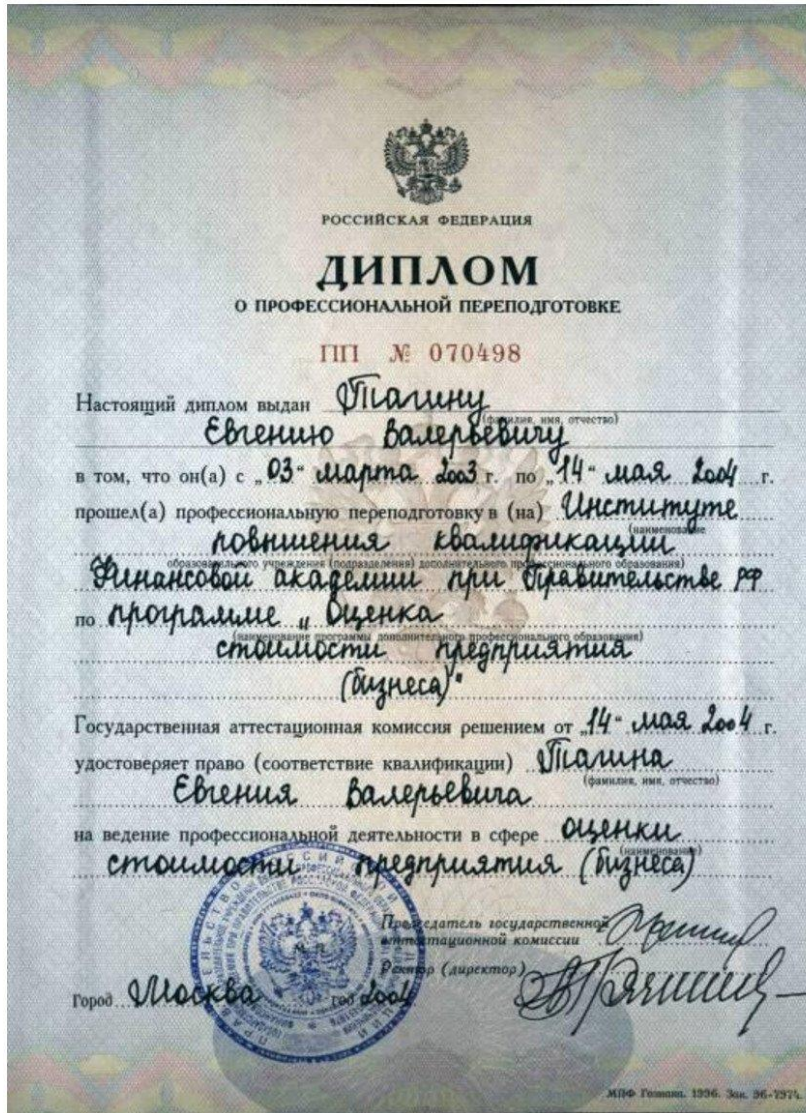 РОССИЙСКАЯ ФЕДЕРАЦИЯ
ДИПЛОМ
О ПРОФЕССИОНАЛЬНОЙ ПЕРЕПОДГОТОВКЕ
ПП № 070498
Настоящий диплом выдан Тагину
(фамилия, имя, отчество)
Евгению Валерьевичу
в том, что он(а) с „03“ марта 2003 г. по „14“ мая 2004 г.
прошел(а) профессиональную переподготовку в (на) Институте
(наименование
повышения квалификации
образовательного учреждения (подразделения) дополнительного профессионального образования)
Финансовой академии при Правительстве РФ
по программе „Оценка
(наименование программы дополнительного профессионального образования)
стоимости предприятия
(бизнеса)“
Государственная аттестационная комиссия решением от „14“ мая 2004 г.
удостоверяет право (соответствие квалификации) Тагина
(фамилия, имя, отчество)
Евгения Валерьевича
на ведение профессиональной деятельности в сфере оценки
(наименование)
стоимости предприятия (бизнеса)
Председатель государственной
аттестационной комиссии
Ректор (директор)
Город Москва год 2004
МПФ Гознака. 1996. Зак. 96-7974.